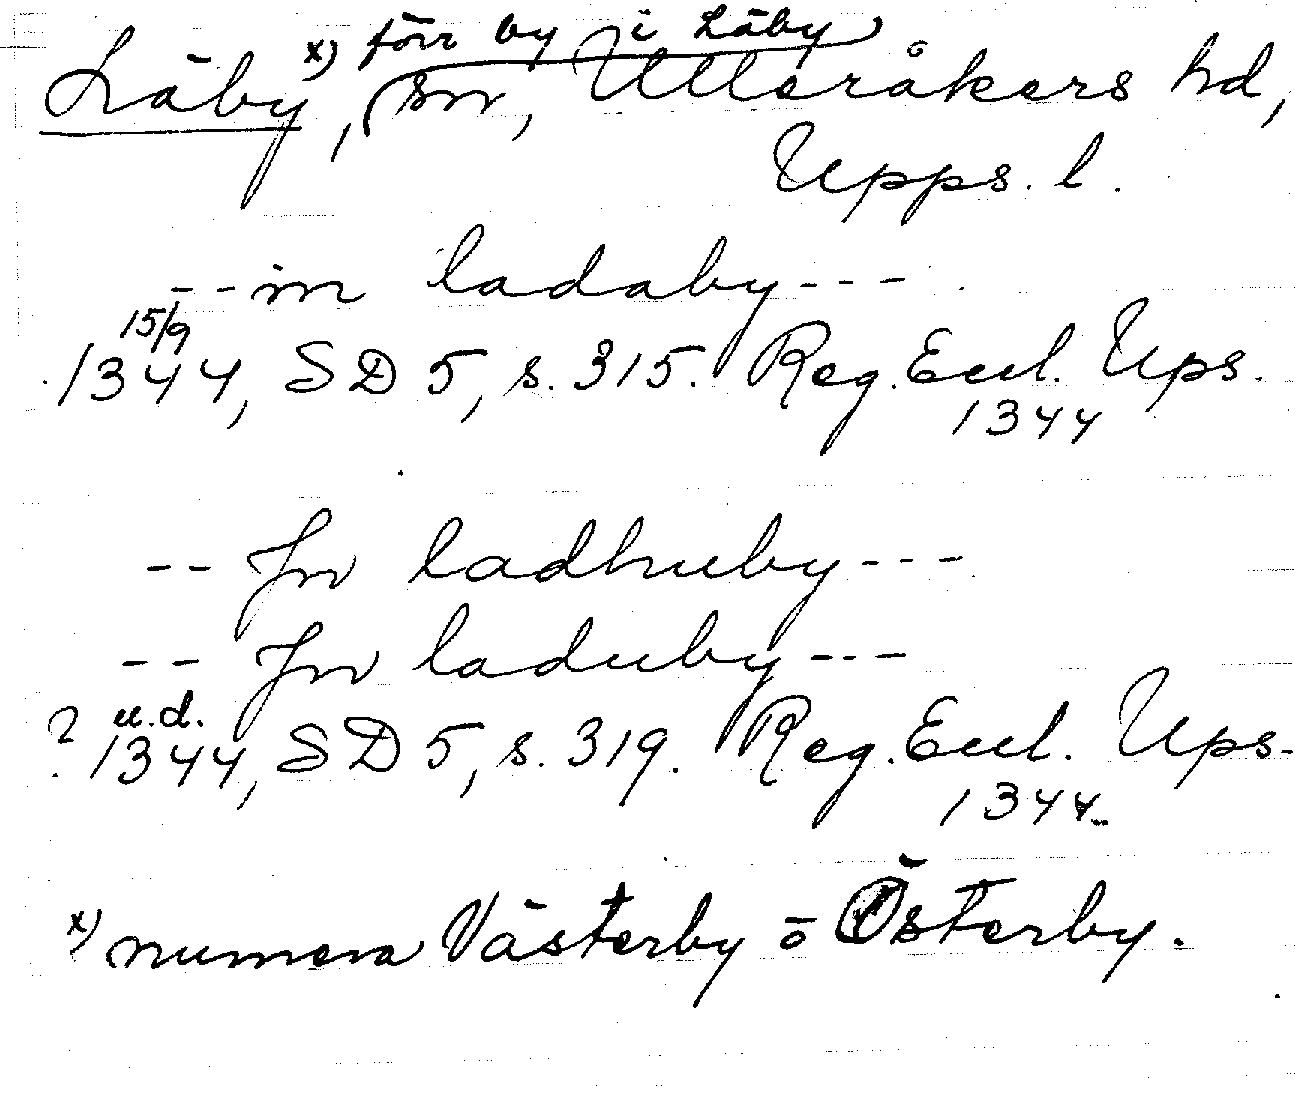 x) förr by i Läby
Läby, sn, Ulleråkers hd,
Upps. l.
--in ladaby---
15/9
1344, SD 5, s. 315. Reg. Eccl. Ups.
1344
-- Jn ladhuby---
-- Jn laduby---
? u.d.
1344, SD 5, s. 319. Reg. Eccl. Ups.
1344.
x) numera Västerby o Österby.